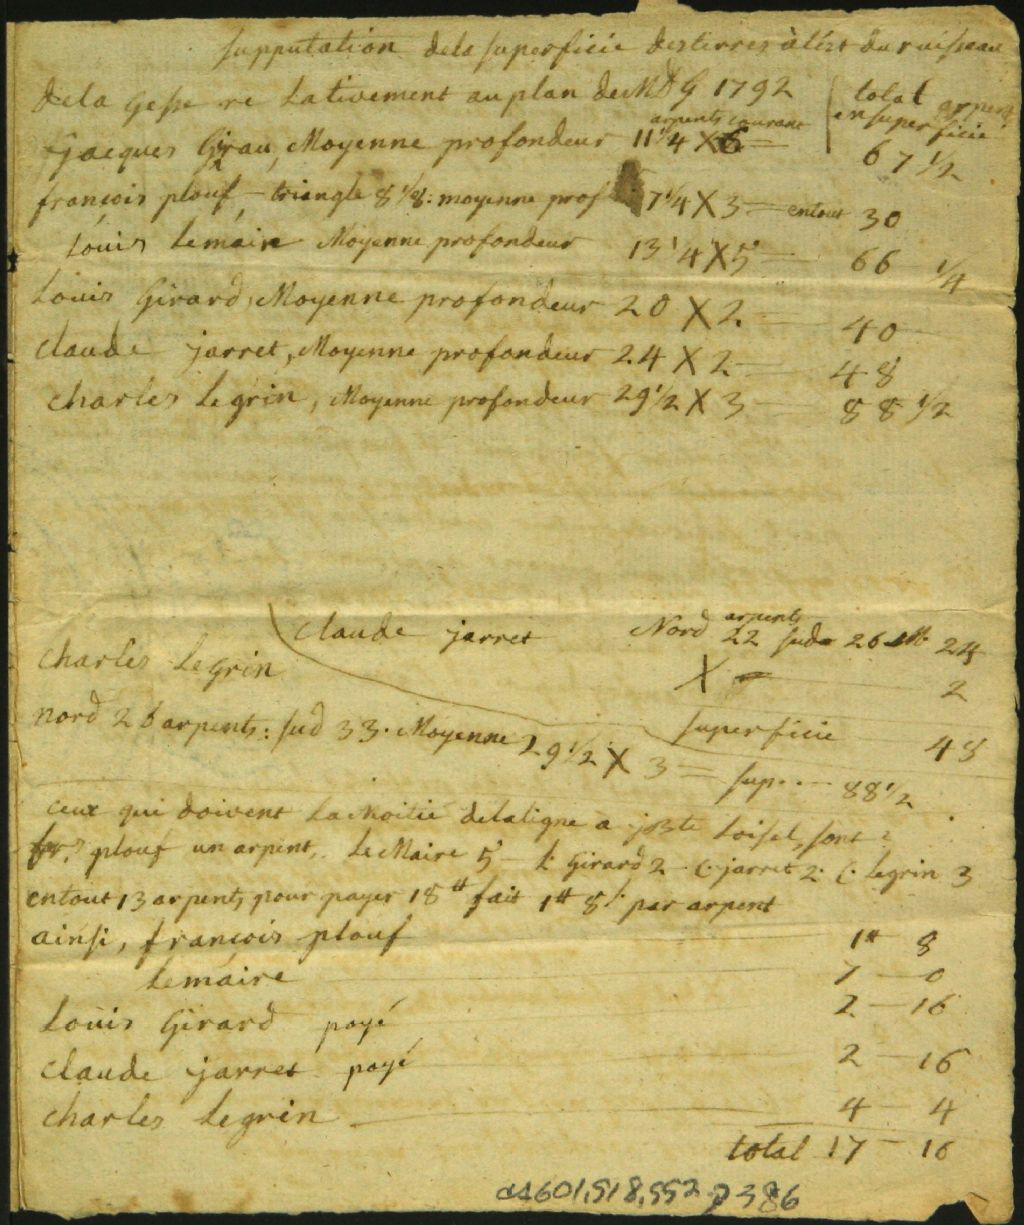 supputation dela superficie desterres à lést du ruisseau
dela Gesse relativement au plan de Md G 1792
total arpent
en superficie
arpents courant
Jacques Girau, Moyenne profondeur 11 1/4 X 6 = 67 1/2
françois plouf — triangle 8 1/8: moyenne prof 7 1/4 X 3 = entout 30
Louis Lemaire Moyenne profondeur 13 1/4 X 5 = 66 1/4
Louis Girard, Moyenne profondeur 20 X 2 — 40
claude jarret, Moyenne profondeur 24 X 2 = 48
charles Legrin, Moyenne profondeur 29 1/2 X 3 — 88 1/2
claude jarret Nord arpents 22 sud 26 24
X 2
superficie 48
charles Legrin
nord 26 arpents: sud 33. Moyenne 29 1/2 X 3 = sup... 88 1/2
ceux qui doivent La Moitié delaligne a Loisel, sont:
frs plouf un arpent, LeMaire 5 — L: Girard 2 — C: jarret 2: C: Legrin 3
entout 13 arpents pour payer 18tt fait 1tt 8s: par arpent
ainsi, françois plouf 1tt 8
Lemaire — 7 — 0
Louis Girard payé 2 — 16
claude jarret payé 2 — 16
charles Legrin — 4 — 4
total 17 — 16
a4601,518,552 p386